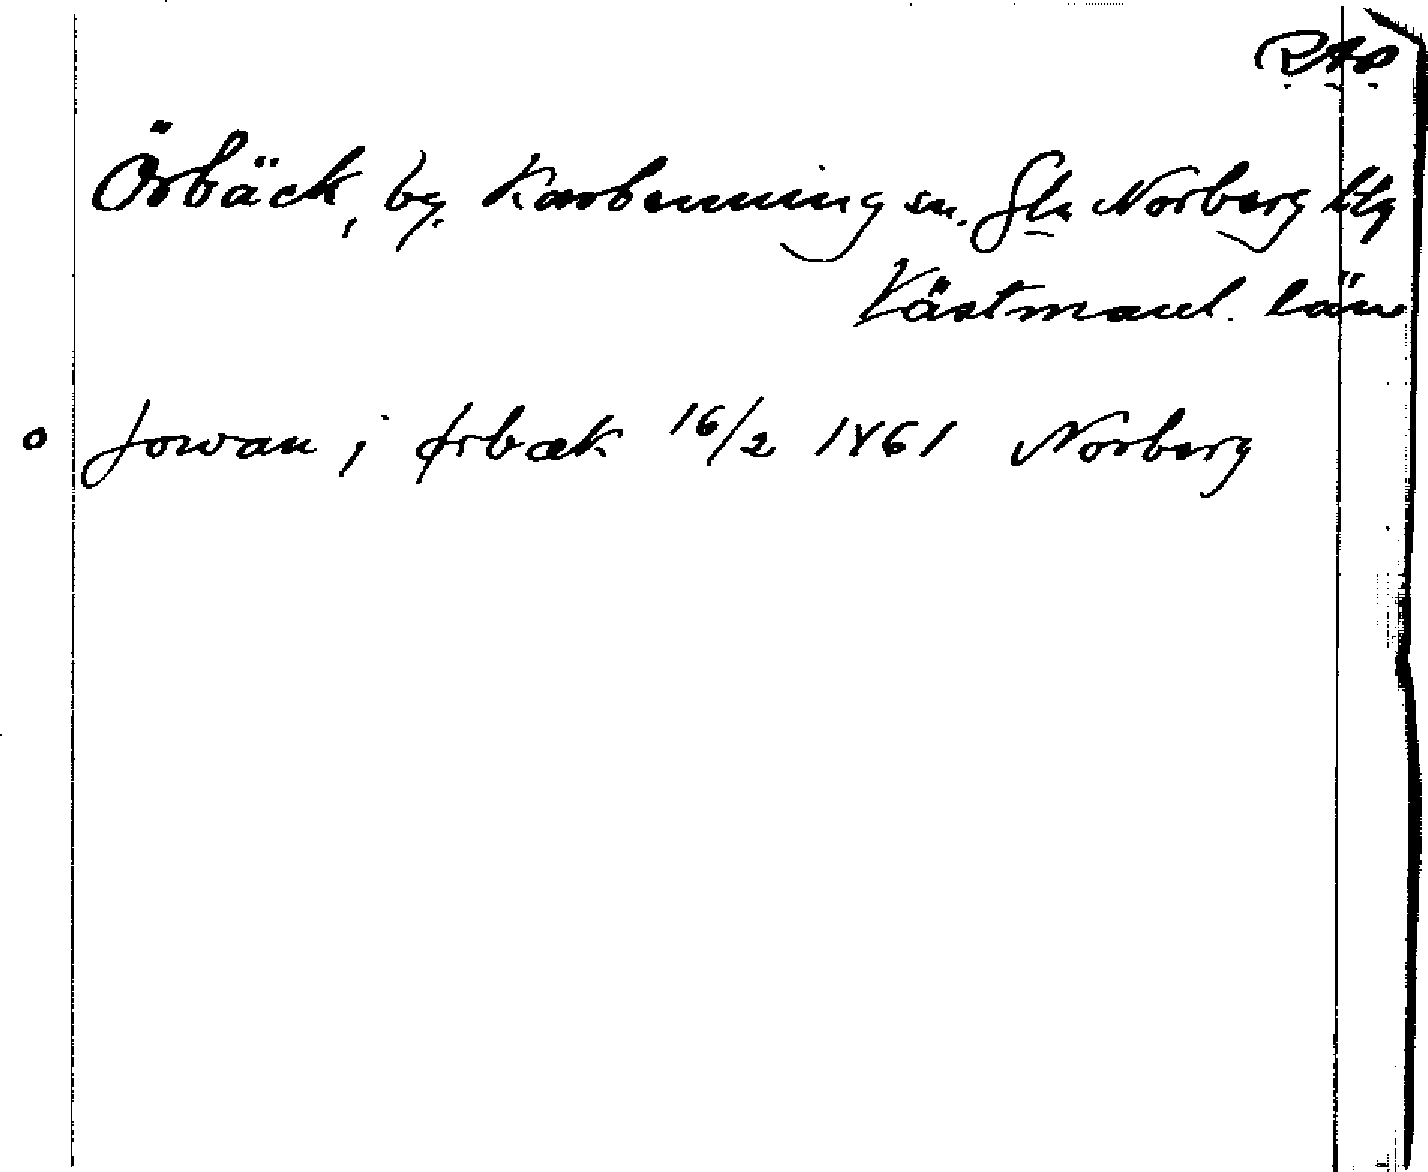 RAP
Örbäck, by. Karbenning sn. Gla Norberg blg
Västmanl. län
o Jowan j ørbæk 16/2 1461 Norberg